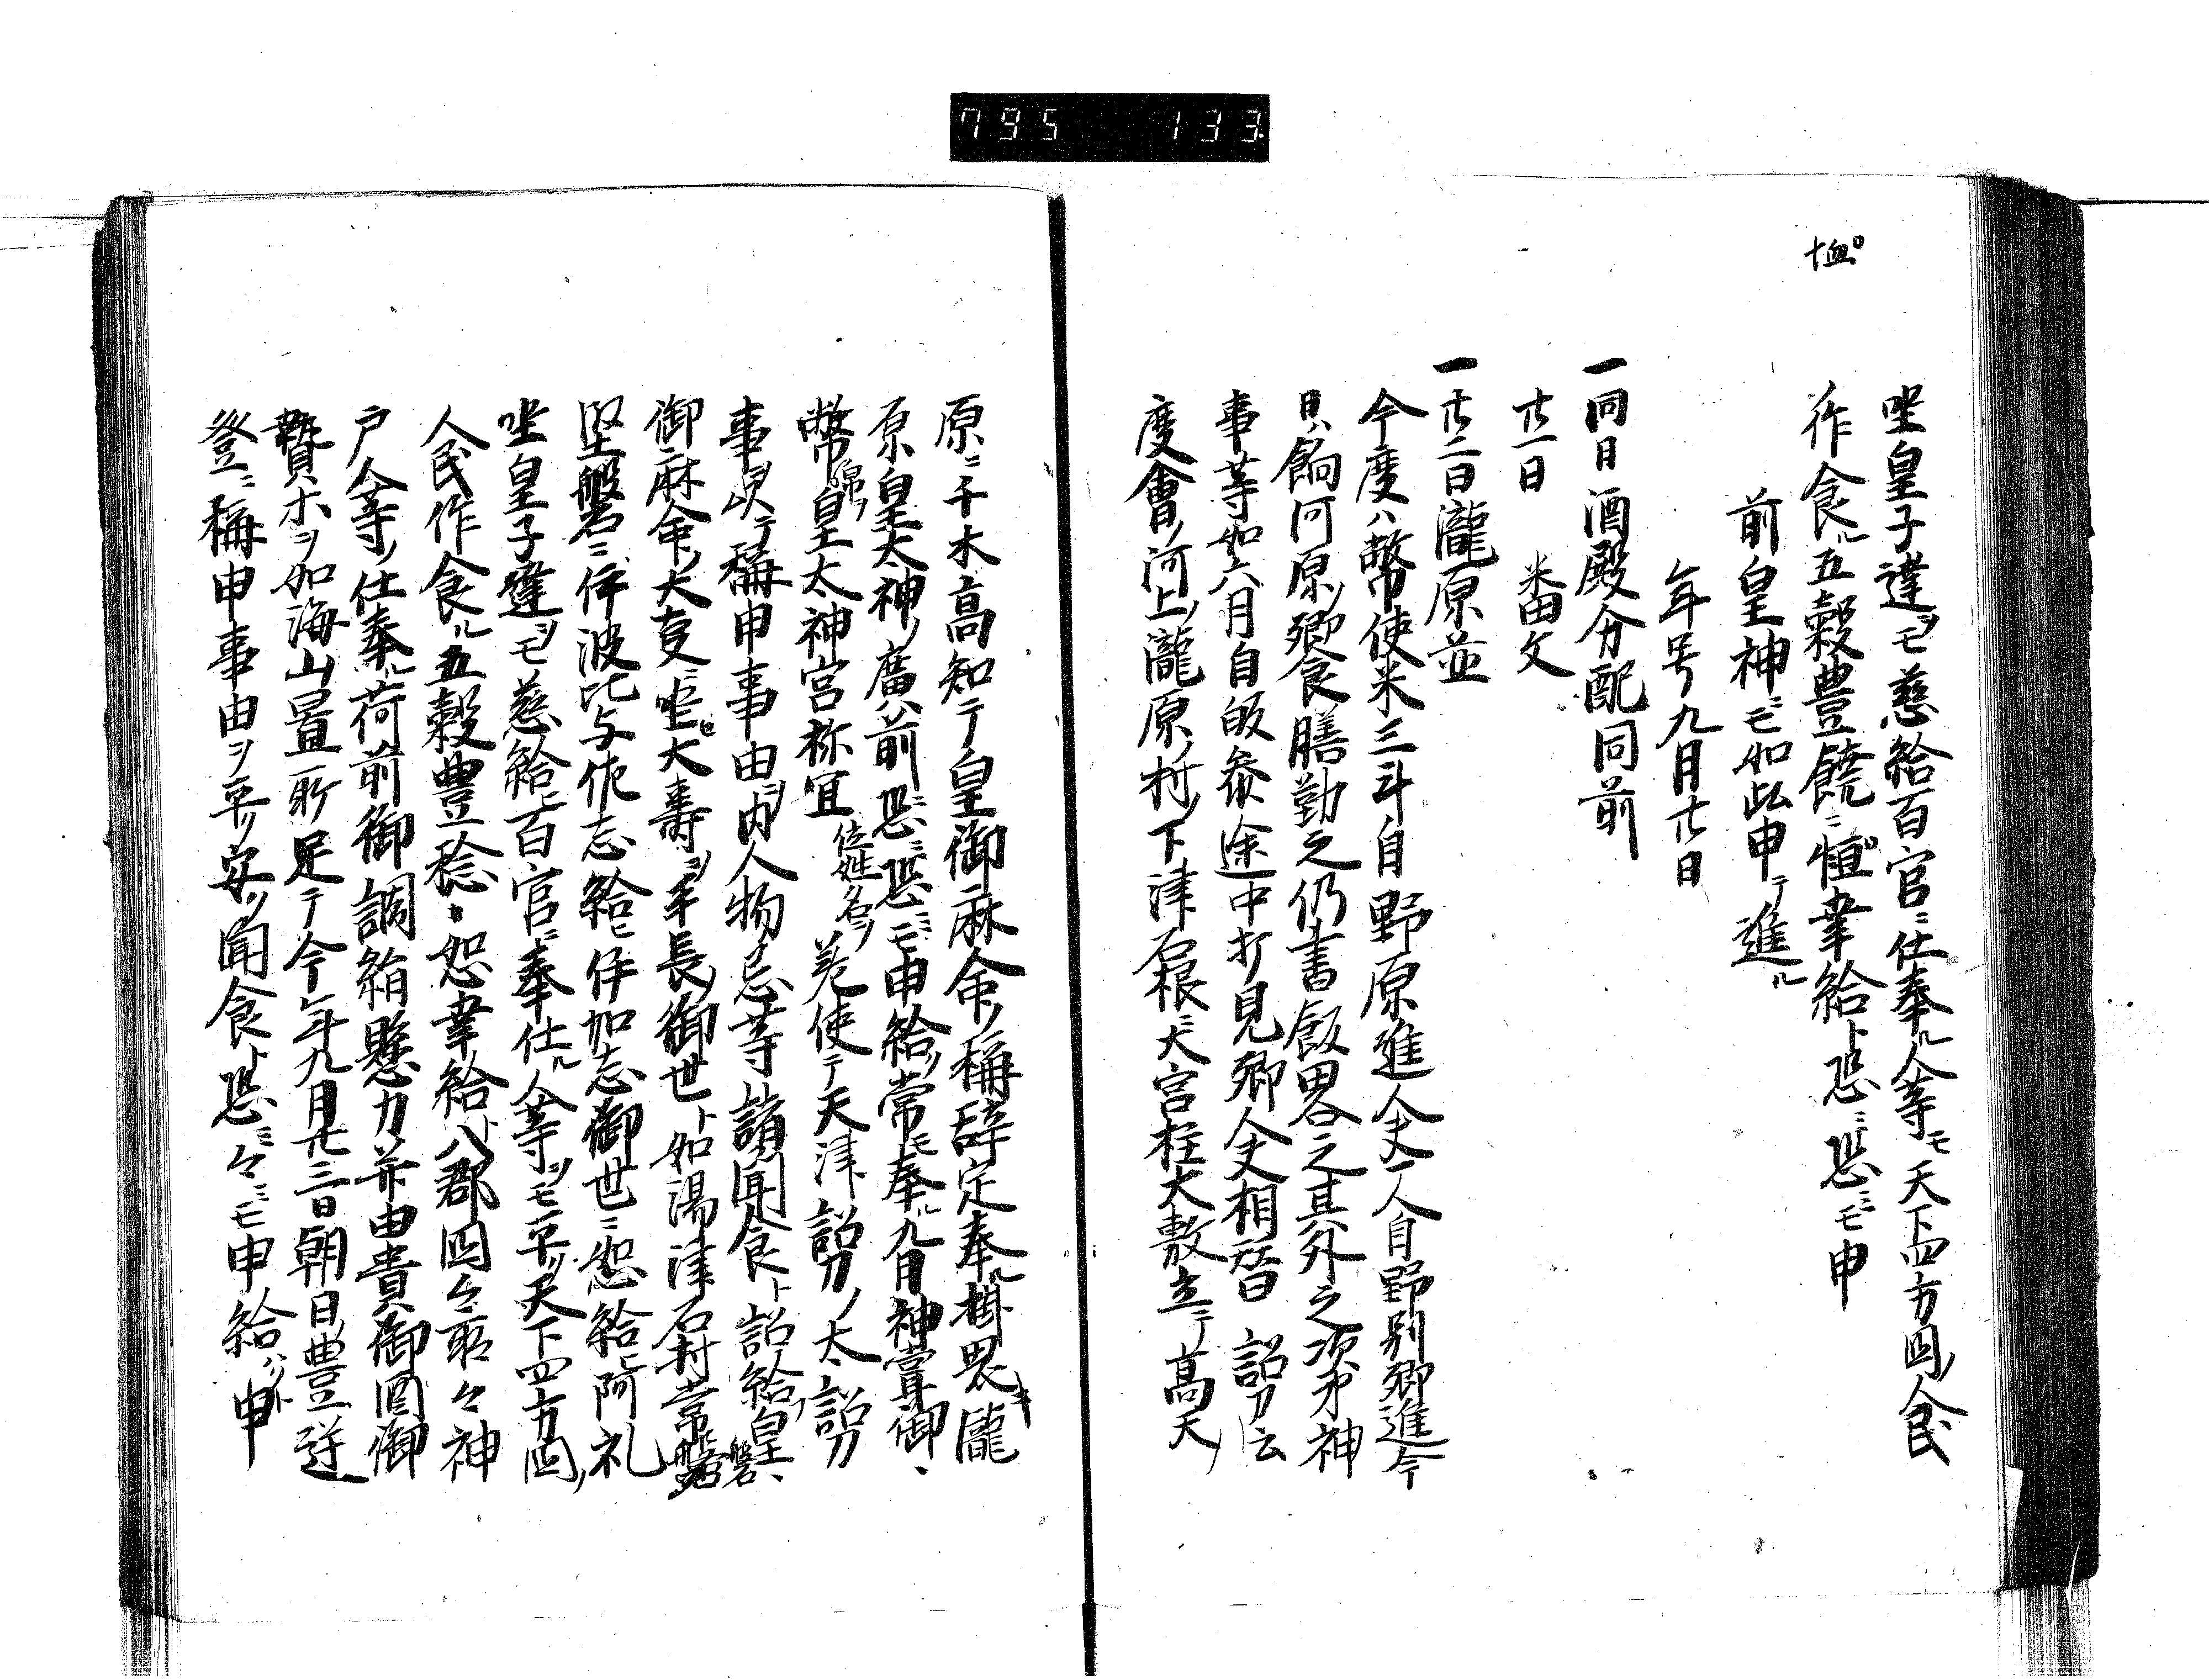 795 133
坐皇子達ヲモ慈給百官ニ仕奉ル人等モ天下四方国ノ人民
作食ル五穀豊饒ニ恤幸給ト恐ミ恐ミモ申
前皇神ニモ如此申テ進ル
年号九月廿日
一同日酒殿分配同前
廿一日 番文
一廿二日瀧原並
今度ハ幣使米三斗自野原進人夫一人自野別郷進今
具餉河原郷食膳勤之仍書飯畧之其外之次第神
事等如六月自皈参途中打見郷人夫相替 詔刀云
度會ノ河上ノ瀧原ノ村ノ下津石根ニ大宮柱大敷立テ高天ノ
原ニ千木高知テ皇御麻命ノ稱辞定奉ル掛畏キ瀧
原皇太神ノ廣前ニ恐ミ恐ミモ申給ク常モ奉ル九月神嘗御
幣帛ノ皇太神宮祢宜位姓名ヲ差使テ天津詔刀ノ太詔刀
事以テ稱申事由ヲ内人物忌等諸聞食ト詔給皇
御麻命ノ大寿ヲ手長御世ト如湯津石村常磐
堅磐ニ伊波比与佐志給ヒ伊加志御世ニ幸給ヒ阿礼
坐皇子達ヲモ慈給ヒ百官ニ奉仕ル人等ヲモ平ク天下四方国ノ
人民作食ル五穀豊稔ニ恤幸給ト八郡国々所々神
戸人等ノ仕奉ル荷前御調絹懸力并由貴御酒御
贄ホヲ如海山置所足テ今年九月廿三日朝日豊逆
登ニ稱申事由ヲ平ク安ク聞食ト恐ミ々ミモ申給ハクト申